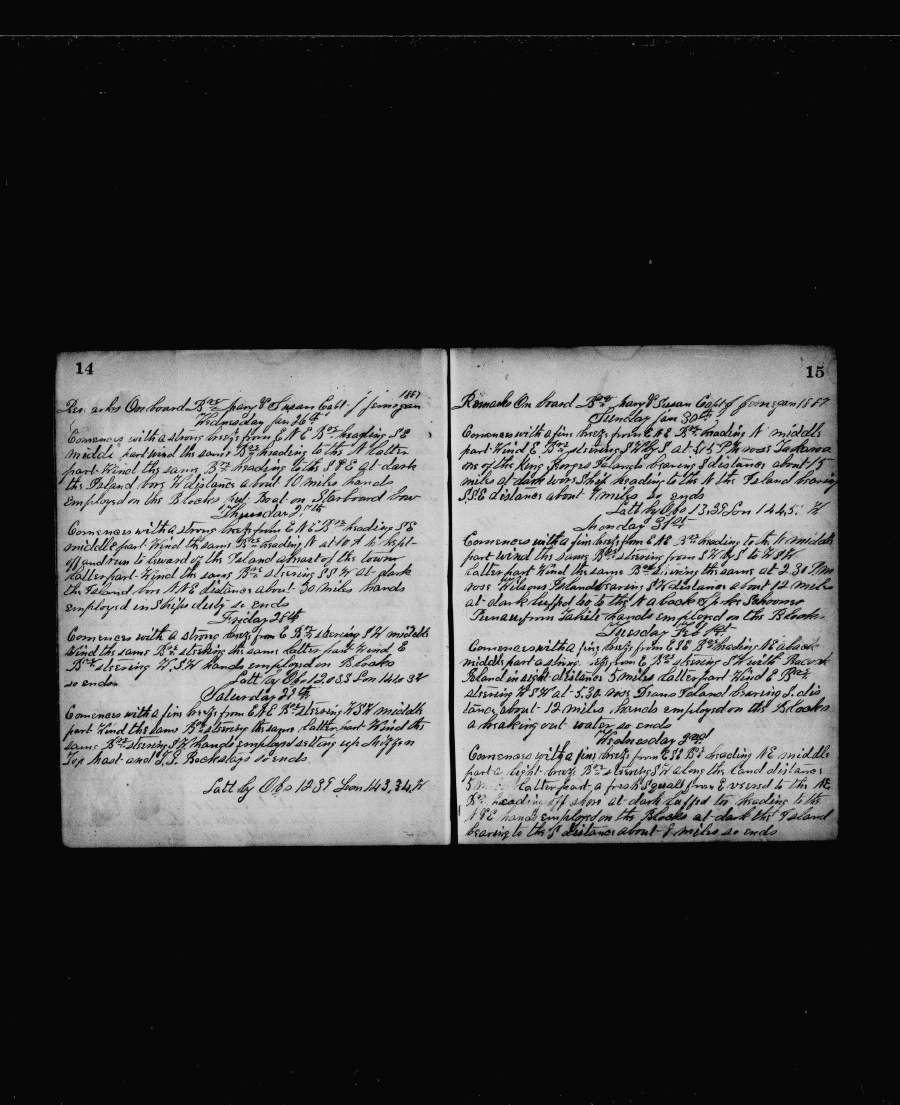 14
1887
Remarks On board Bark Mary & Susan Capt J Jernegan
Wednesday Jan 26th
Comences with a strong breeze from E N E Bark heading S E
middle part wind the same Bark heading to the N latter
part Wind the same Bark heading to the S S E at dark
the Island bore W distance about 10 miles hands
employed on the Blocks Boat on Starboard bow
Thursday 27th
Comences with a strong breeze from E N E Bark heading S E
middle part Wind the same Bark heading N at 10 A M kept
off and run to leward of the Island abreast of the town
latter part Wind the same Bark steering S S W at dark
the Island bore N N E distance about 30 miles hands
employed in Ships duty so ends
Friday 28th
Comences with a strong breeze from E Bark steering S W middle
Wind the same Bark steering the same latter part Wind E
Bark steering W.S.W hands employed on Blocks
so ends Latt by Obs 12.03 S Lon 140 32
Saturday 29th
Comences with a fine breeze from E N E Bark steering W S W middle
part Wind the same Bark steering the same latter part Wind the
same Bark steering S W hands employed setting up Mizzen
Top mast and Backstays so ends
Latt by Obs 12 39 Lon 143,34 W
15
Remarks On board Bark Mary & Susan Capt J Jernegan 1887
Sunday Jan 30th
Comences with a fine breeze from E N E Bark heading N middle
part Wind E Bark steering S W by S, at 5.15 P M rose
one of the King Georges Islands bearing S distance about 15
miles at dark wore Ship heading to the N the Island bearing
S S E distance about 7 miles so ends
Latt by Obs 13,39 Lon 144,51 W
Monday 31st
Comences with a fine breeze from E N E Bark heading to the N middle
part wind the same Bark steering from S W by S to W S W
latter part Wind the same Bark steering the same at 2.30 P m
rose Wilsons Island bearing S W distance about 12 miles
at dark luffed to to the N aback Spoke Schooner
from Tahiti hands employed on the Blocks
Tuesday Feb 1st
Comences with a fine breeze from E S E Bark heading N E aback
middle part a strong breeze from E Bark steering S W with
Island in sight distance 5 miles latter part Wind E Bark
steering W S W at 5.30 rose Deans Island bearing S. dis
tance, about 12 miles hands employed on the Blocks
a breaking out water so ends
Wednesday 2nd
Comences with a fine breeze from E S E Bark heading N E middle
part a light breeze Bark steering S W along the land distance
5 miles latter part a fresh Squall from E veered to the N E
Bark heading off shore at dark luffed to heading to the
N E hands employed on the Blocks at dark the Island
bearing to the S distance about 8 miles so ends